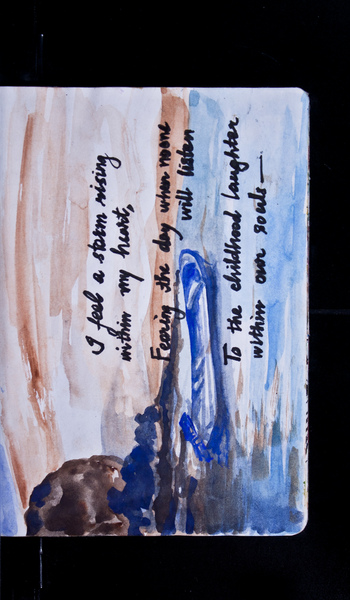 I feel a storm rising
within my heart,
Fearing the day when noone
will listen
To the childhood laughter
within our souls —